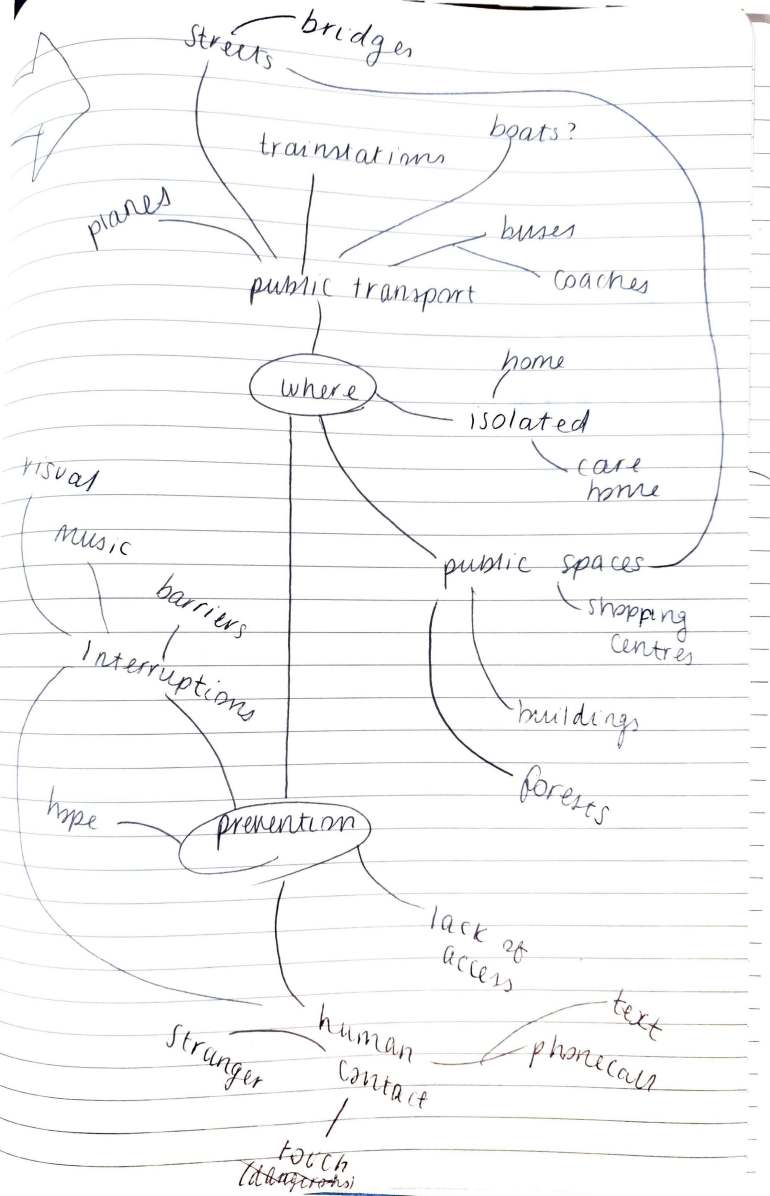 bridges
streets
boats?
trainstations
planes
buses
coaches
public transport
home
where
isolated
care
home
visual
music
public spaces
barriers
shopping
centres
Interruptions
buildings
forests
hope
prevention
lack of
access
text
human
stranger
phonecall
contact
touch
(dangerous)